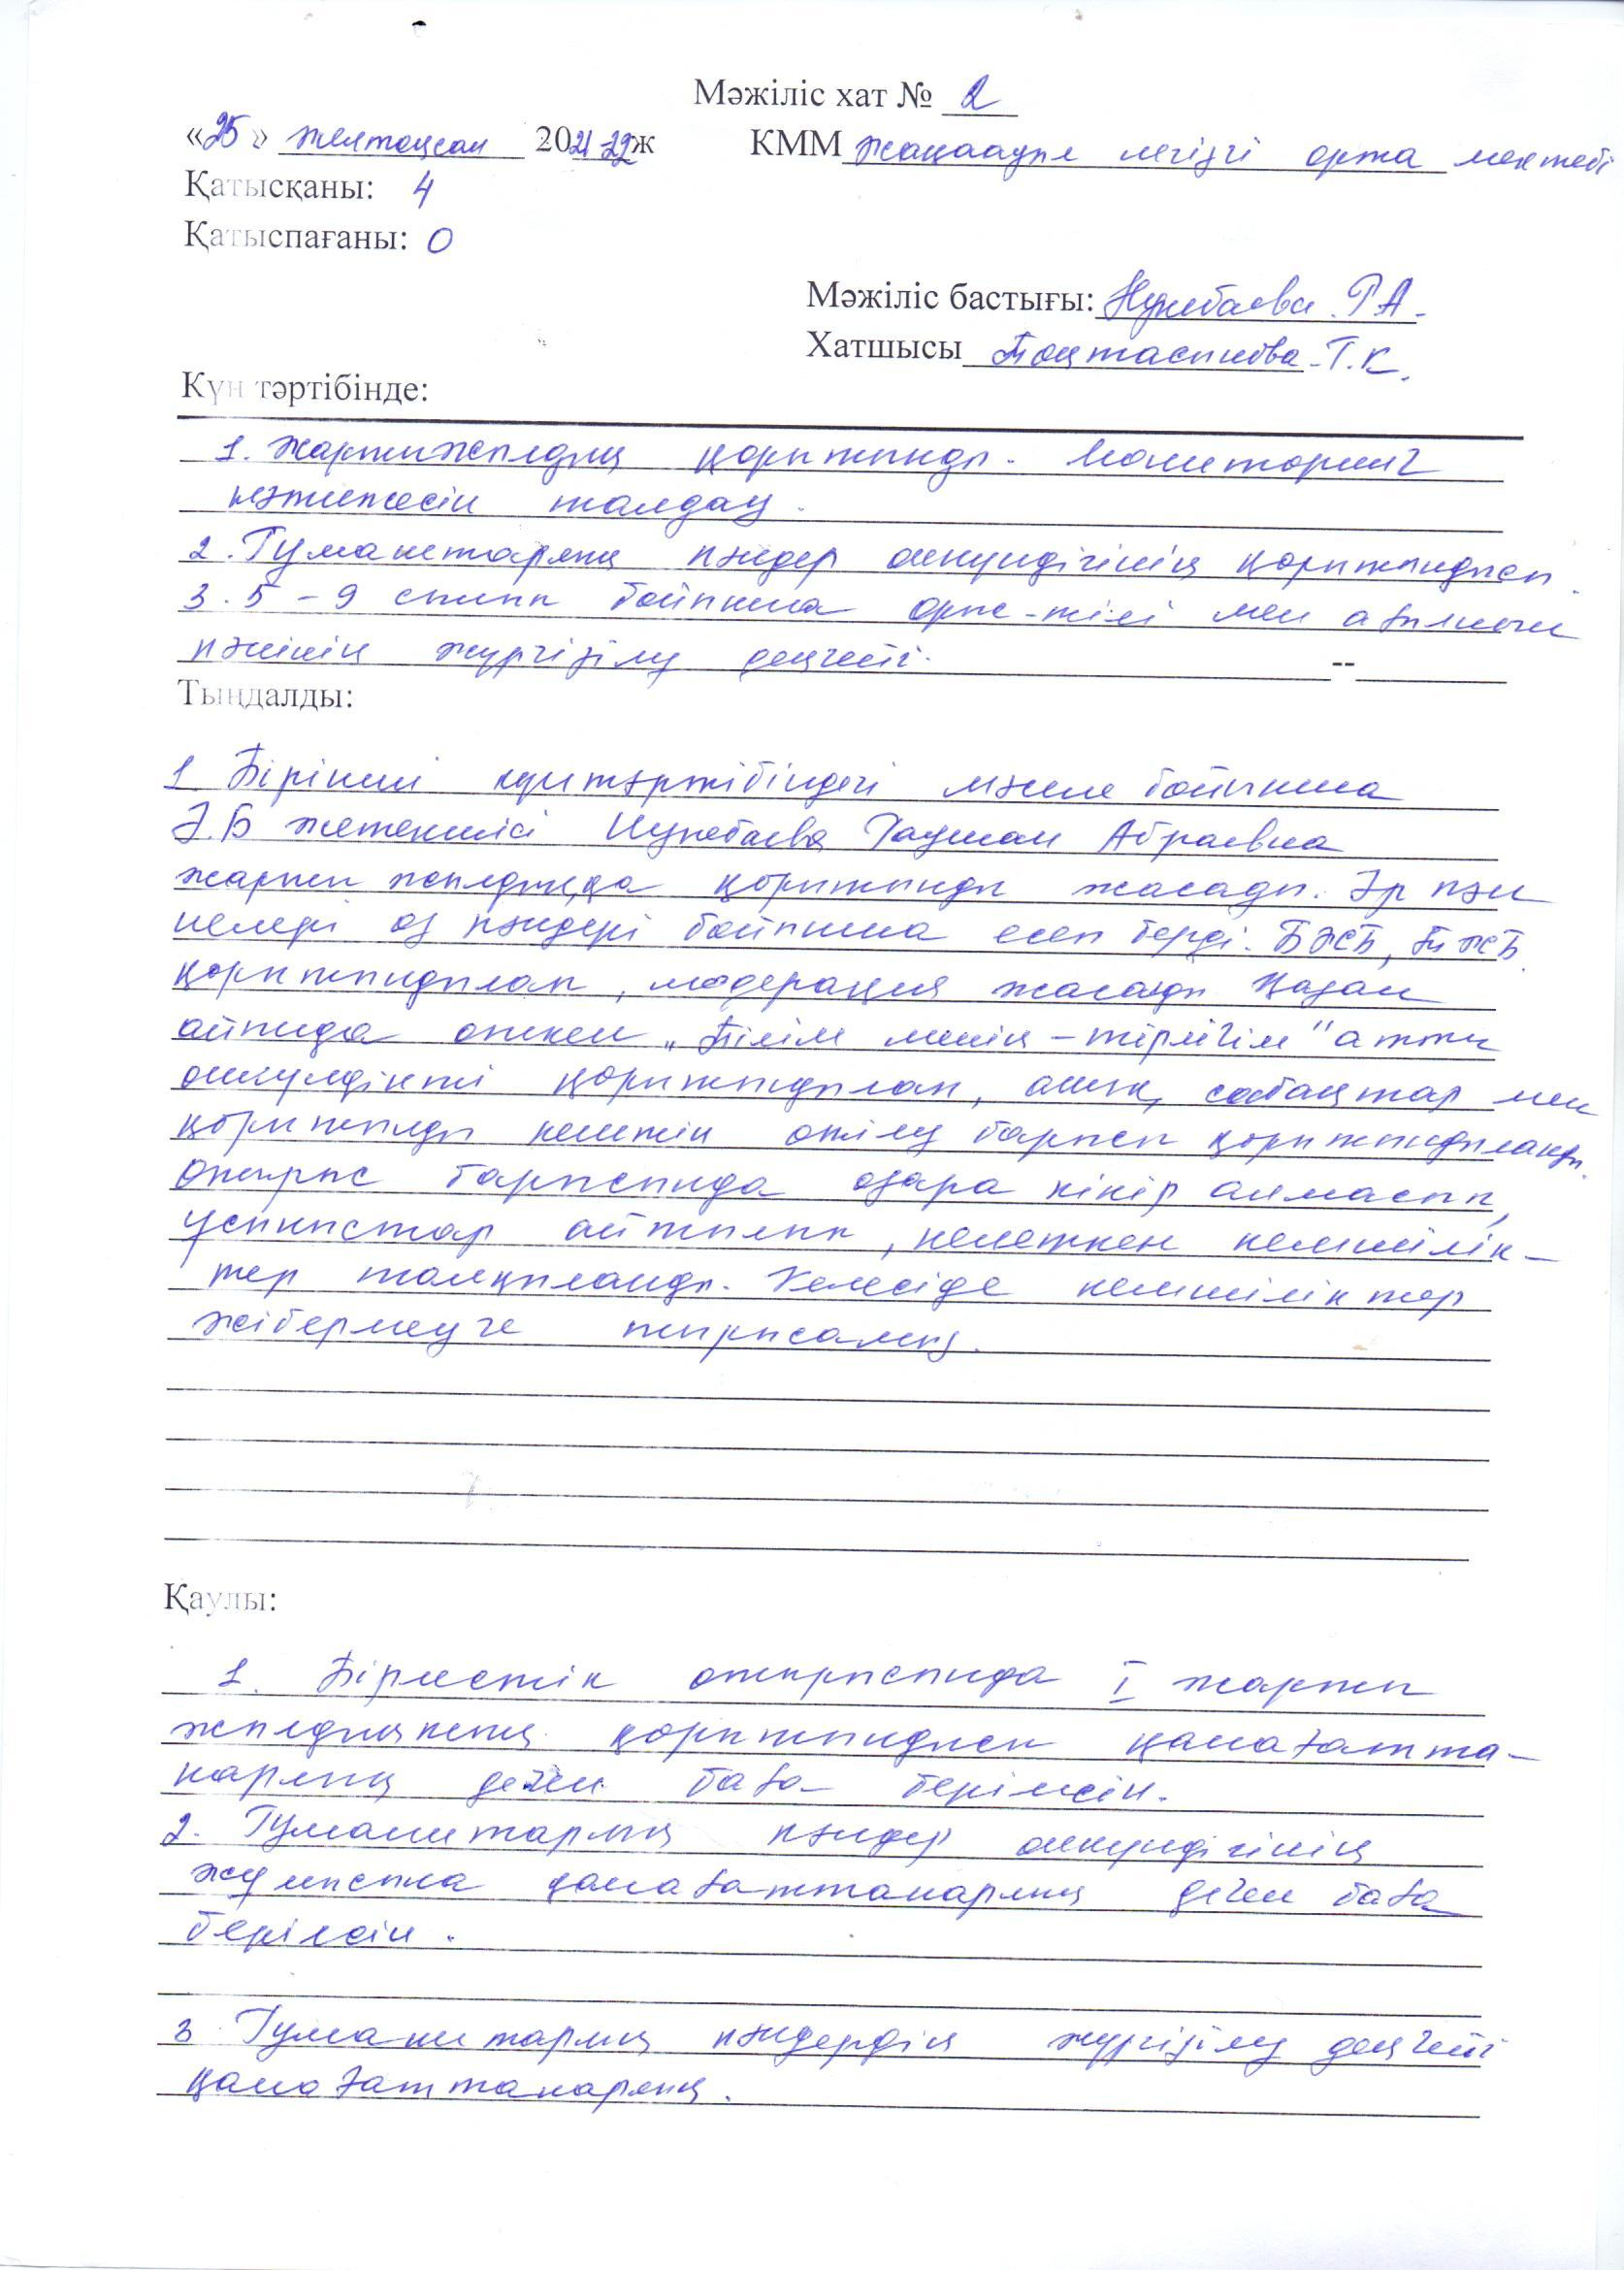 Мәжіліс хат № 2
«25» желтоқсан 2021-22ж КММ Жаңаауыл негізгі орта мектебі
Қатысқаны: 4
Қатыспағаны: 0
Мәжіліс бастығы: Нукебаева Г.А.
Хатшысы Тоқтасынова Т.К.
Күн тәртібінде:
1. Жартыжылдық қорытынды. Мониторинг
нәтижесін талдау.
2. Гуманитарлық пәндер онкүндігінің қорытындысы.
3. 5-9 сынып бойынша орыс-тілі мен ағылшын
пәнінің жүргізілу деңгейі.
Тыңдалды:
1 Бірінші күнтәртібіндегі мәселе бойынша
Ә.Б жетекшісі Нукебаева Гаушан Абраевна
жарты жылдыққа қорытынды жасады. Әр пән
иелері өз пәндері бойынша есеп берді. БЖБ, ТЖБ
қорытындылап, модерация жасалды Қазан
айында өткен „Білім менің-тірлігім" атты
онкүндікті қорытындылап, ашық сабақтар мен
қорытынды кештің өтілу барысы қорытындыланды.
Отырыс барысында өзара пікір алмасып,
ұсыныстар айтылып, келеткен кемшілік-
тер талқыланды. Келесіде кемшіліктер
жібермеуге тырысамыз.
Қаулы:
1. Бірлестік отырысында I жарты
жылдықтың қорытындысы қанағатта-
нарлық деген баға берілсін.
2. Гуманитарлық пәндер онкүндігінің
жұмысына қанағаттанарлық деген баға
берілсін.
3 Гуманитарлық пәндердің жүргізілу деңгейі
қанағаттанарлық.